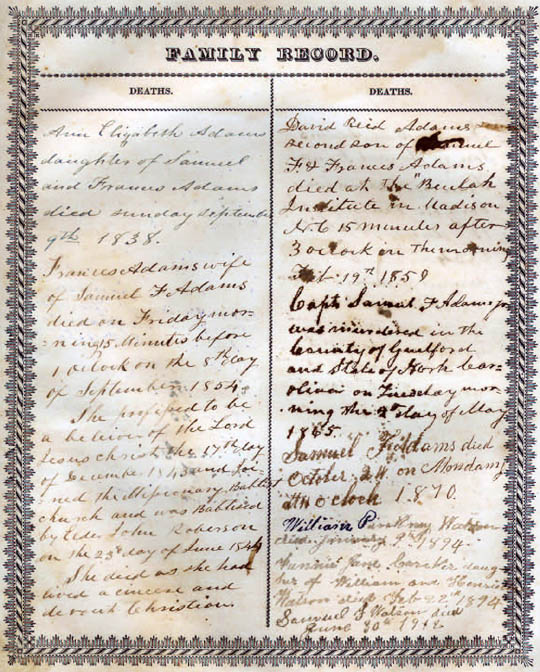 FAMILY RECORD.
DEATHS.
Ann Elizabeth Adams
daughter of Samuel
and Frances Adams
died sunday september
9th 1838.
Frances Adams wife
of Samuel F Adams
died on Friday mor-
-ning 15 Minutes before
1 oclock on the 8th day
of September 1854
She professed to be
a believer of the Lord
Jesus christ the 17th day
of December 1843 and Joi-
ned the Missionary Baptist
church and was Baptised
by Elder John Roberson
on the 23d day of June 1844
She died as she had
lived a cincere and
devout Christian.
DEATHS.
David Reid Adams
second son of Samuel
F & Frances Adams
died at the "Beulah
Institute in Madison
N.C 15 minutes after
3 oclock on the morning
Feb. 19th 1858
Capt Samuel F Adams jr
was murdered in the
County of Guilford
and State of North Car-
olina on Tuesday mor-
ning the day of May
1865.
Samuel F Adams died
October 24 on Monday
at oclock 1870.
William Pinkney Watson
died January 9th 1894.
Jane daug-
hter of William and
Watson died Feb 22nd 1894
Samuel J Watson died
June 30th 1912